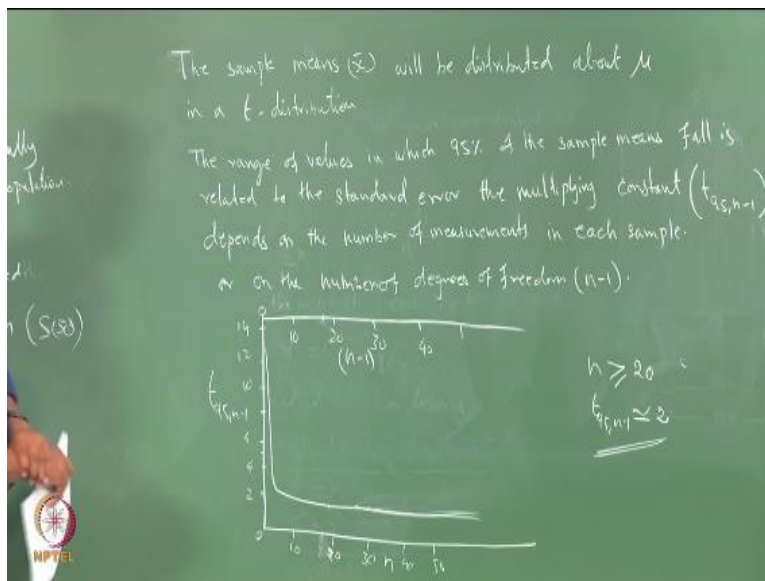 The sample means (x̄) will be distributed about μ
in a t-distribution
The range of values in which 95% of the sample means fall is
related to the standard error the multiplying constant (t95,n-1)
depends on the number of measurements in each sample.
or on the number of degrees of freedom (n-1).
ally
opulation.
(S(x̄))
0 10 20 30 40
(n-1)
14
12
10
6
4
2
0
t95,n-1
10 20 30 n 40 50
n ≥ 20
t95,n-1 ≃ 2
NPTEL